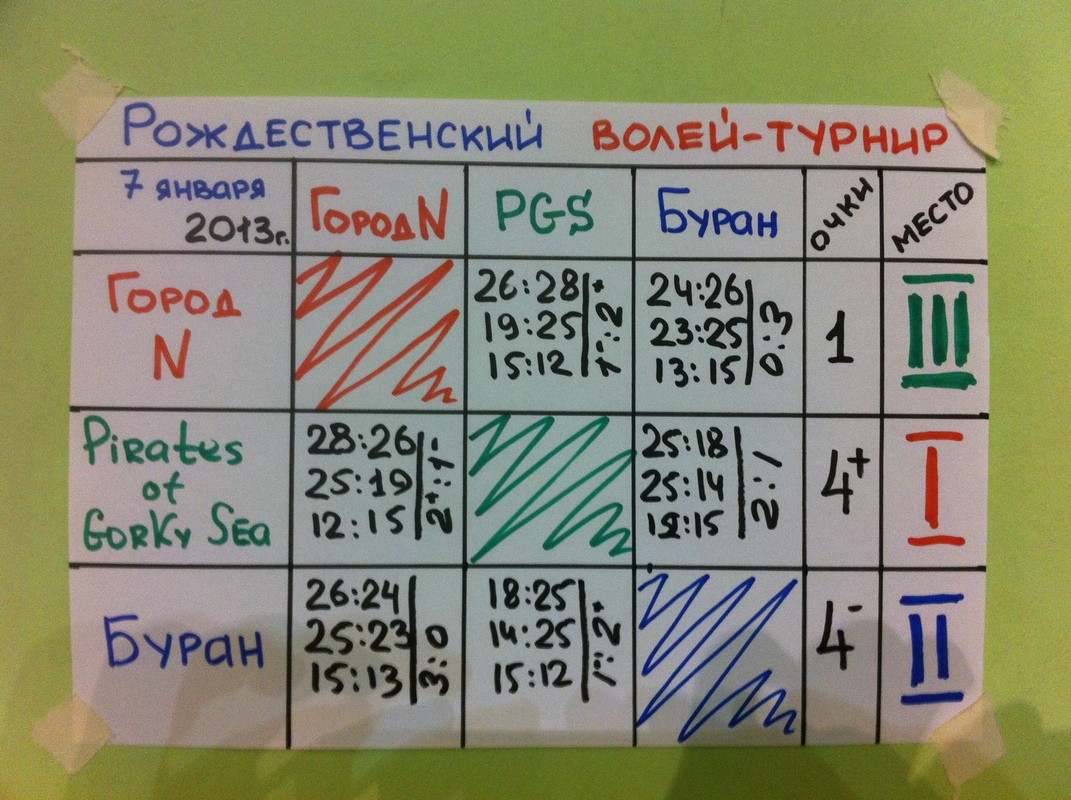 РОЖДЕСТВЕНСКИЙ ВОЛЕЙ-ТУРНИР
7 ЯНВАРЯ
2013г.
ГОРОД N
PGS
БУРАН
ОЧКИ
МЕСТО
ГОРОД
N
26:28
19:25
15:12
24:26
23:25
13:15
0:3
1
III
PiRates
of
GORKY SEA
28:26
25:19
12:15
25:18
25:14
12:15
2:1
4+
I
БУРАН
26:24
25:23
15:13
3:0
18:25
14:25
15:12
4-
II